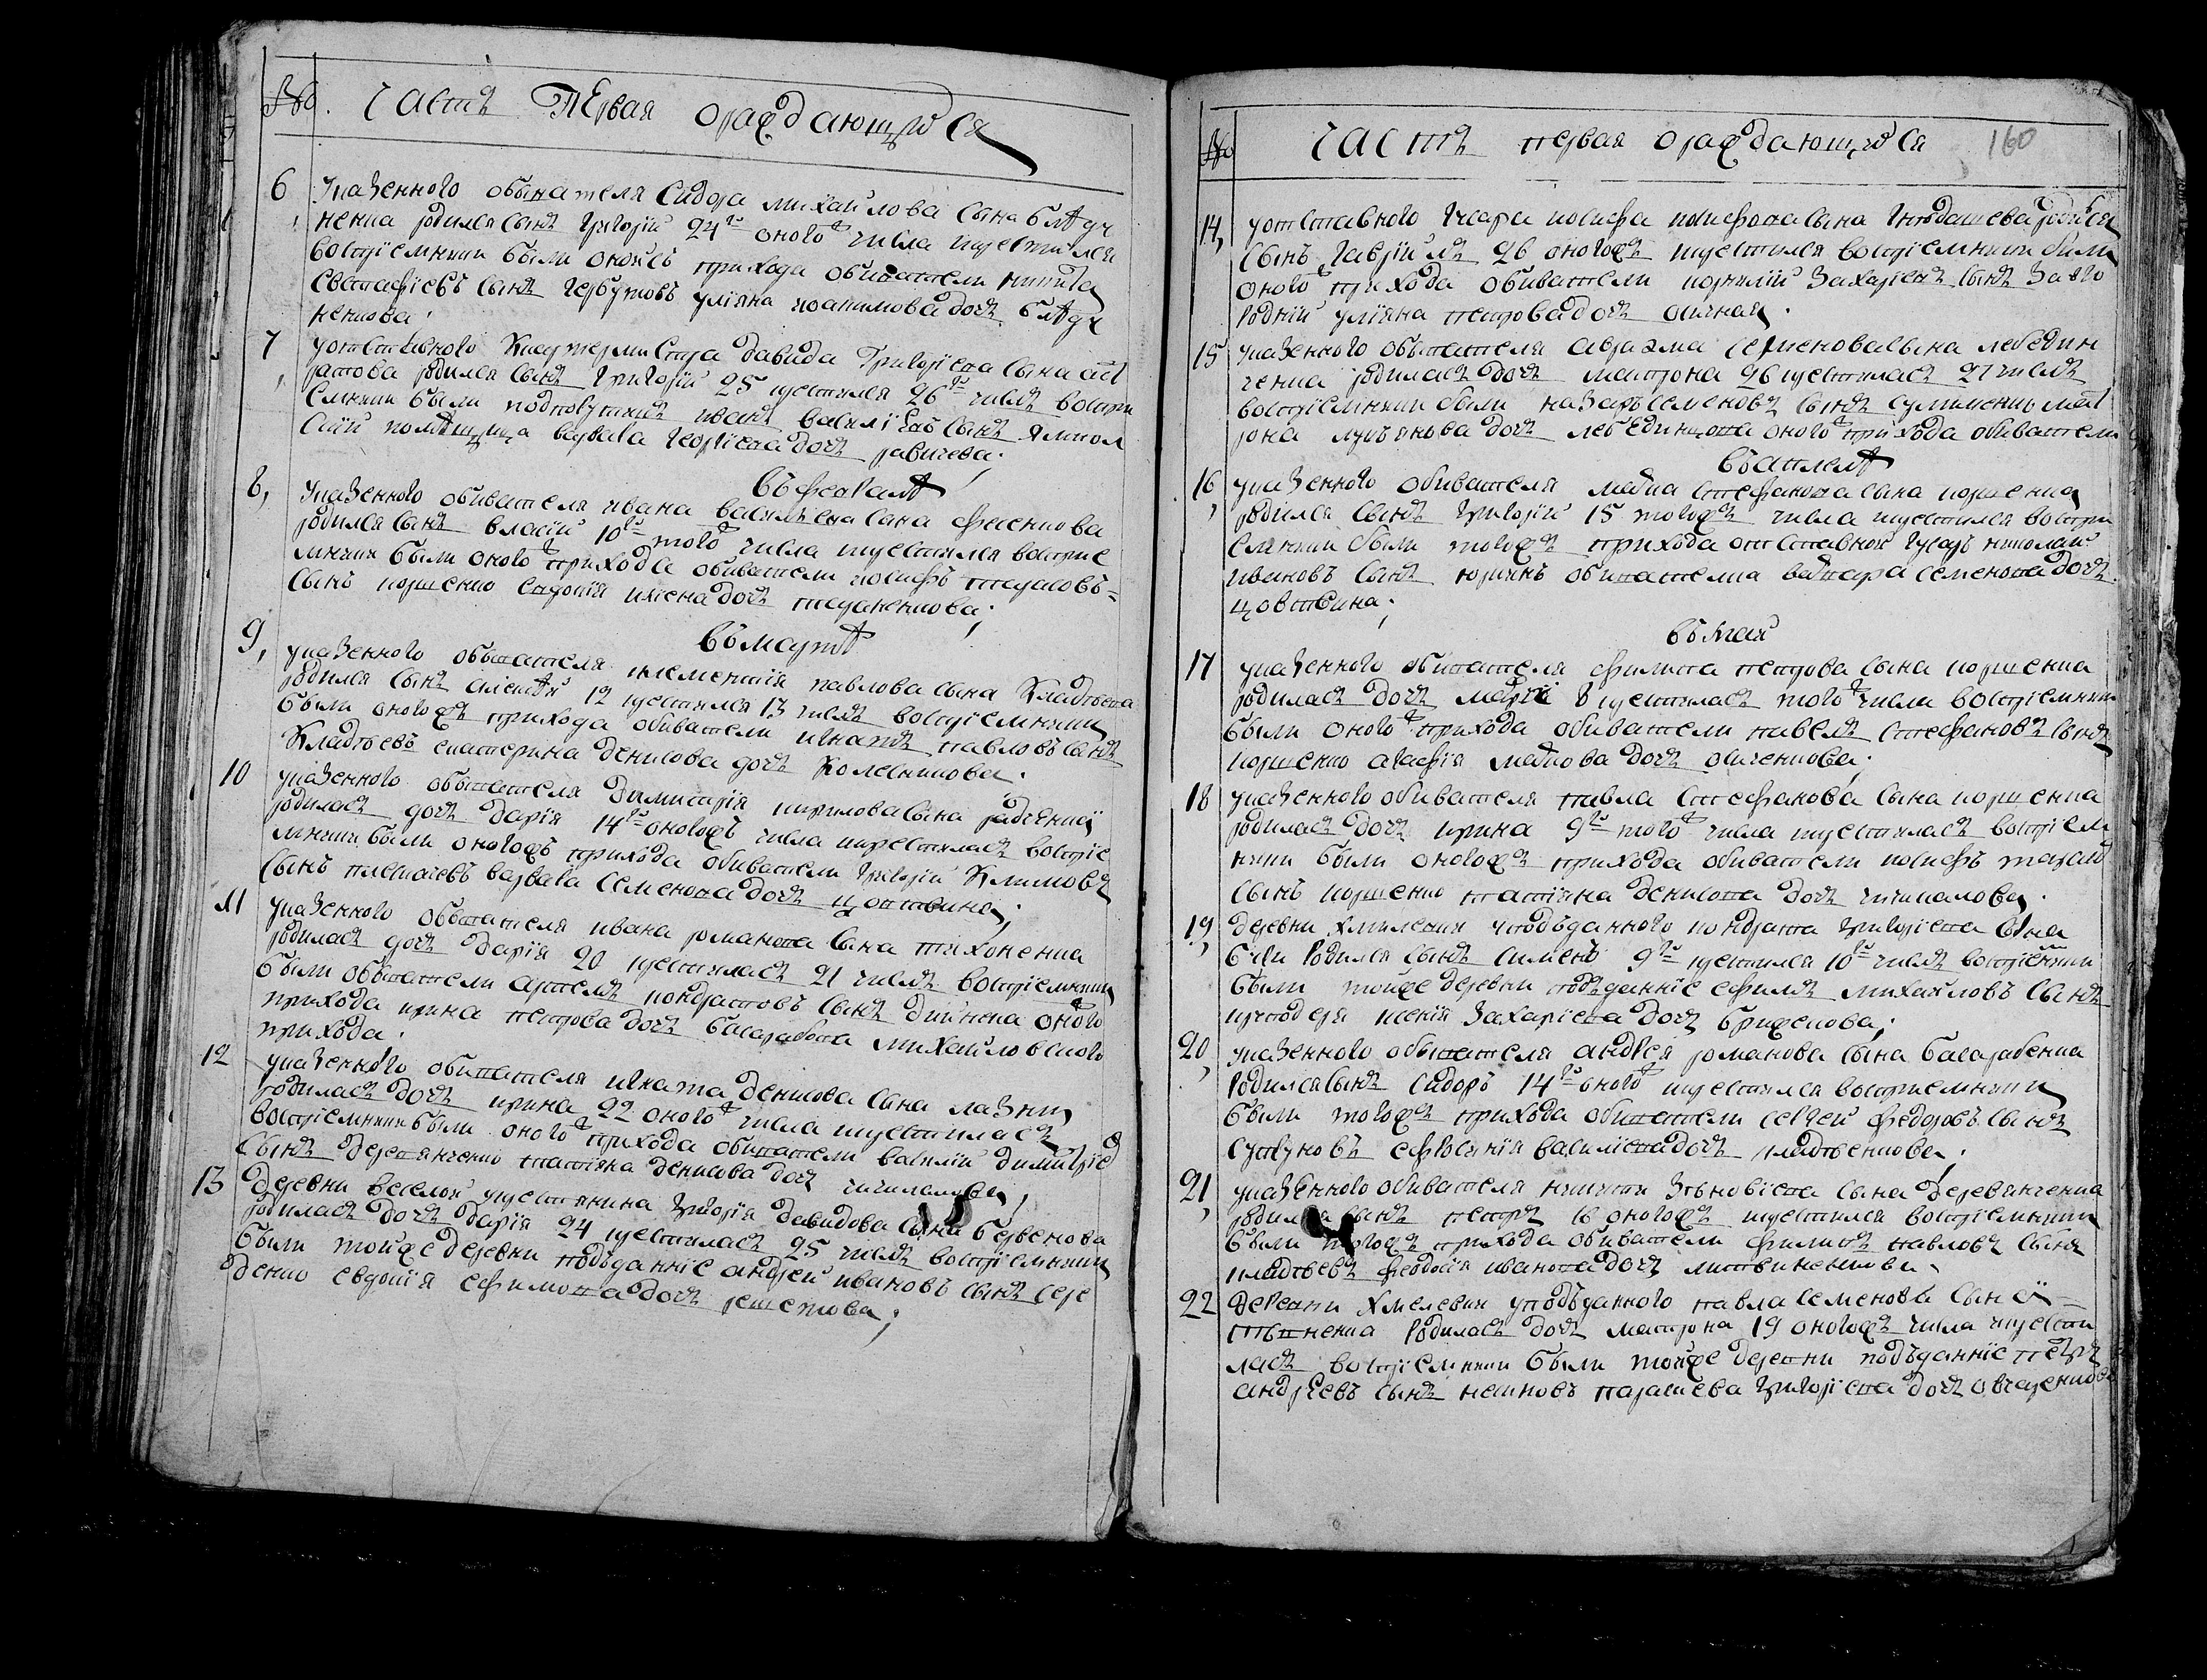 № часть Первая ораждающихся
6 указенного обывателя Сидора михайлова сына блѣдч
ненка родился сынъ григорій 24го оного числа крестился
воспріемники были оной прихода обиватели никита
Евстафіевъ сынъ чербутовъ уліяна иоакимова дочь блѣдч
ненкова
7 уотставного Квартермистра давида Григоріева сына
родился сынъ григорій 25 крестился 26го числъ воспри
емники были подпорутчикъ иванъ василіевъ сынъ
помѣщица варвара георгіева дочь равичева
въ февралѣ
8, указенного обивателя ивана василиева сина фесенкова
родился сынъ власій 10го того числа крестился восприе
мники были оного прихода обиватели иосифъ
сынъ коршенко Евдокія дочь
въ мартѣ
9, указенного обывателя климентія павлова сина Кладтѣева
родился сынъ алексѣй 12 крестился 13 числъ воспріемники
были оногожъ прихода обиватели игнатъ павловъ сынъ
Кладтѣевъ екатерина денисова дочь Колесникова
10 указенного обывателя Димитрія кирилова сына
родилась дочь дарія 14го оногожъ числа кирестилась воспріе
мники были оногожъ прихода обиватели григорій Климовъ
сынъ варвара семенова дочь цовтвина
11 указенного обывателя ивана романова сина тихоненка
родилась дочь дарія 20 крестилась 21 числъ воспріемники
были обыватели артемъ кондратовъ сынъ оного
прихода ирина петрова дочь басарабова михайловского
прихода
12 указенного обивателя игната денисова сина
родилась дочь ирина 22 оного числа крестилась
воспріемники были оного прихода обыватели василій димитріев
сынъ деревянченко татіяна денисова дочь чичикалова
13 деревни веселой крестянина григорія давидова сына бервенова
родилась дочь дарія 24 крестилась 25 числъ воспріемники
были тойже деревни подъданніе андрей ивановъ сынъ сере
денко евдокія ефимова дочь решетова
№ часть первая ораждающихся 160
14, уотставного гусара иосифа иосифова сына родился
сынъ гавріилъ 26 оногожъ крестился воспріемники были
оного прихода обиватели корнилій захаріевъ сынъ заво
родній уліяна петрова дочь
15 указенного обывателя авраама семенова сына лебедин
ченка родилась дочь матрона 26 крестилась 27 числъ
воспріемники были назаръ семеновъ сынъ сулименко мат
рона дочь лебединцова оного прихода обиватели
въ апрелѣ
16 указенного обивателя стефанова сына коршенка
родился сынъ григорій 15 тогожъ числа крестился воспри
емники были тогожъ прихода отставной гусаръ николай
ивановъ сынъ обывателка варвара семенова дочь
цовтвина
въ маѣ
17 указенного обывателя филипа петрова сына коршенка
родилась дочь 8 крестилась того числа воспріемники
были оного прихода обиватели павелъ стефановъ сынъ
коршенко агафія дочь
18 указенного обивателя павла стефанова сына коршенка
родилась дочь ирина 9го того числа крестилась воспріем
ники были оногожъ прихода обиватели иосифъ
сынъ коршенко татіяна денисова дочь чичикалова
19, деревни уподъданного кондрата григоріева сына
родился сынъ симеонъ 9го крестился 10го числъ воспріемники
были тойже деревни подъданніе ефимъ михайловъ сынъ
ксенія захаріева дочь
20, указенного обывателя андрея романова сына басарабенка
родился сынъ сидоръ 14го оного крестился восприемники
были тогожъ прихода обыватели сергей федоровъ сынъ
ефросинія василіева дочь кладтѣенкова
21, указенного обивателя никити зѣновіева сина деревянченка
родился сынъ петръ 16 оногожъ крестился воспріемники
были тогожъ прихода обиватели филипъ павловъ сынъ
кладтѣевъ феодосія иванова дочь литвиненкова
22 деревни уподъданного павла семенова сина
родилась дочь матрона 19 оногожъ числа крести
лась воспріемники были тойже деревни подъданніе петръ
андреевъ сынъ параскева григоріева дочь